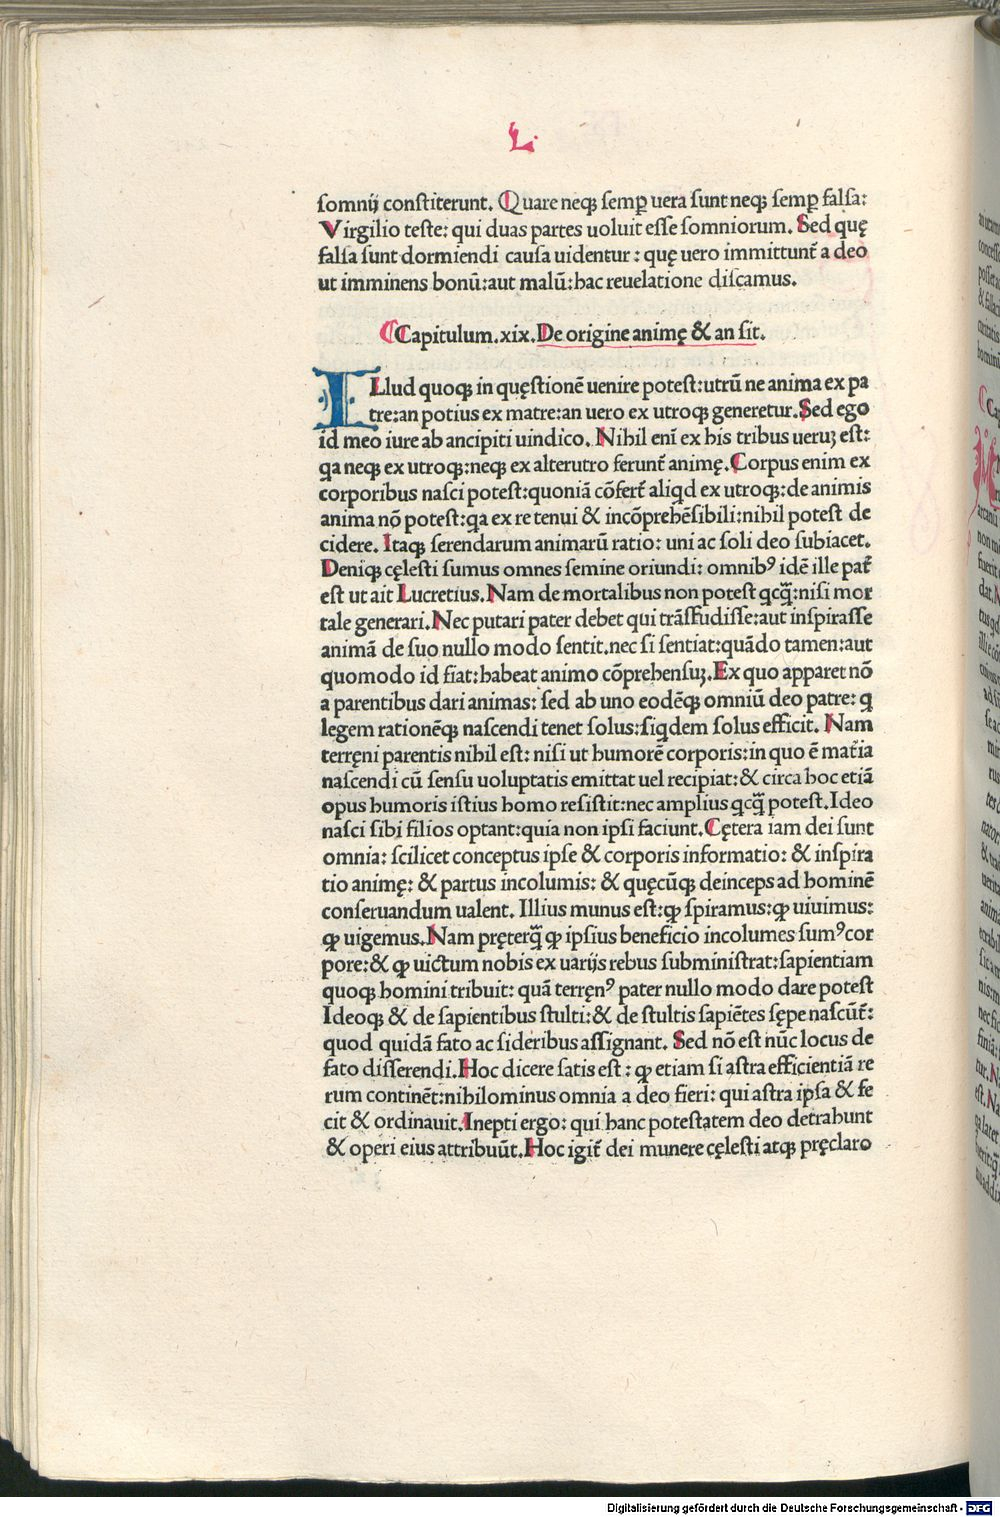 L.
somnij constiterunt. Quare neqꝫ semꝑ uera sunt neqꝫ semꝑ falsa:
Virgilio teste: qui duas partes uoluit esse somniorum. Sed quę
falsa sunt dormiendi causa uidentur: quę uero immittunt̃ a deo
ut imminens bonũ: aut malũ: hac reuelatione discamus.
Capitulum. xix. De origine animę & an sit.
ILlud quoqꝫ in quęstionẽ uenire potest: utrũ ne anima ex pa
tre: an potius ex matre: an uero ex utroqꝫ generetur. Sed ego
id meo iure ab ancipiti uindico. Nihil enĩ ex his tribus ueruꝫ est:
ꝗa neqꝫ ex utroqꝫ: neqꝫ ex alterutro ferunt̃ animę. Corpus enim ex
corporibus nasci potest: quoniã cõfert̃ aliꝗd ex utroqꝫ: de animis
anima nõ potest: ꝗa ex re tenui & incõprehẽsibili: nihil potest de
cidere. Itaqꝫ serendarum animarũ ratio: uni ac soli deo subiacet.
Deniqꝫ cęlesti sumus omnes semine oriundi: omnibꝰ idẽ ille pat̃
est ut ait Lucretius. Nam de mortalibus non potest ꝗcꝗ̃: nisi mor
tale generari. Nec putari pater debet qui trãsfudisse: aut inspirasse
animã de suo nullo modo sentit. nec si sentiat: quãdo tamen: aut
quomodo id fiat: habeat animo cõprehensuꝫ. Ex quo apparet nõ
a parentibus dari animas: sed ab uno eodẽqꝫ omniũ deo patre: ꝗ
legem rationẽqꝫ nascendi tenet solus: siꝗdem solus efficit. Nam
terręni parentis nihil est: nisi ut humorẽ corporis: in quo ẽ mat̃ia
nascendi cũ sensu uoluptatis emittat uel recipiat: & circa hoc etiã
opus humoris istius homo resistit: nec amplius ꝗcꝗ̃ potest. Ideo
nasci sibi filios optant: quia non ipsi faciunt. Cętera iam dei sunt
omnia: scilicet conceptus ipse & corporis informatio: & inspira
tio animę: & partus incolumis: & quęcũqꝫ deinceps ad hominẽ
conseruandum ualent. Illius munus est: ꝙ spiramus: ꝙ uiuimus:
ꝙ uigemus. Nam pręterꝗ̃ ꝙ ipsius beneficio incolumes sumꝰ cor
pore: & ꝙ uictum nobis ex uarijs rebus subministrat: sapientiam
quoqꝫ homini tribuit: quã terręnꝰ pater nullo modo dare potest
Ideoqꝫ & de sapientibus stulti: & de stultis sapiẽtes sępe nascũt̃:
quod quidã fato ac sideribus assignant. Sed nõ est nũc locus de
fato disserendi. Hoc dicere satis est: ꝙ etiam si astra efficientiã re
rum continẽt: nihilominus omnia a deo fieri: qui astra ipsa & fe
cit & ordinauit. Inepti ergo: qui hanc potestatem deo detrahunt
& operi eius attribuũt. Hoc igit̃ dei munere cęlesti atqꝫ pręclaro
Digitalisierung gefördert durch die Deutsche Forschungsgemeinschaft - DFG